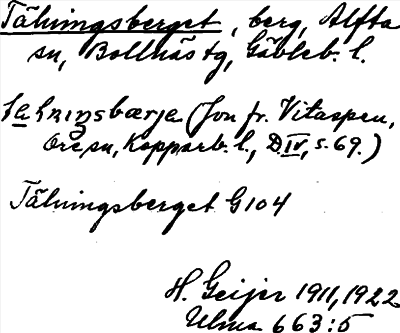 Tälningsberget, berg, Alfta
sn, Bollnäs tg, Gävleb. l.
(Jon fr. Vitaspen,
Ore sn, Kopparb. l., D IV, s. 69.)
Tälningsberget G104
H. Geijer 1911, 1922
Ulma 663:5